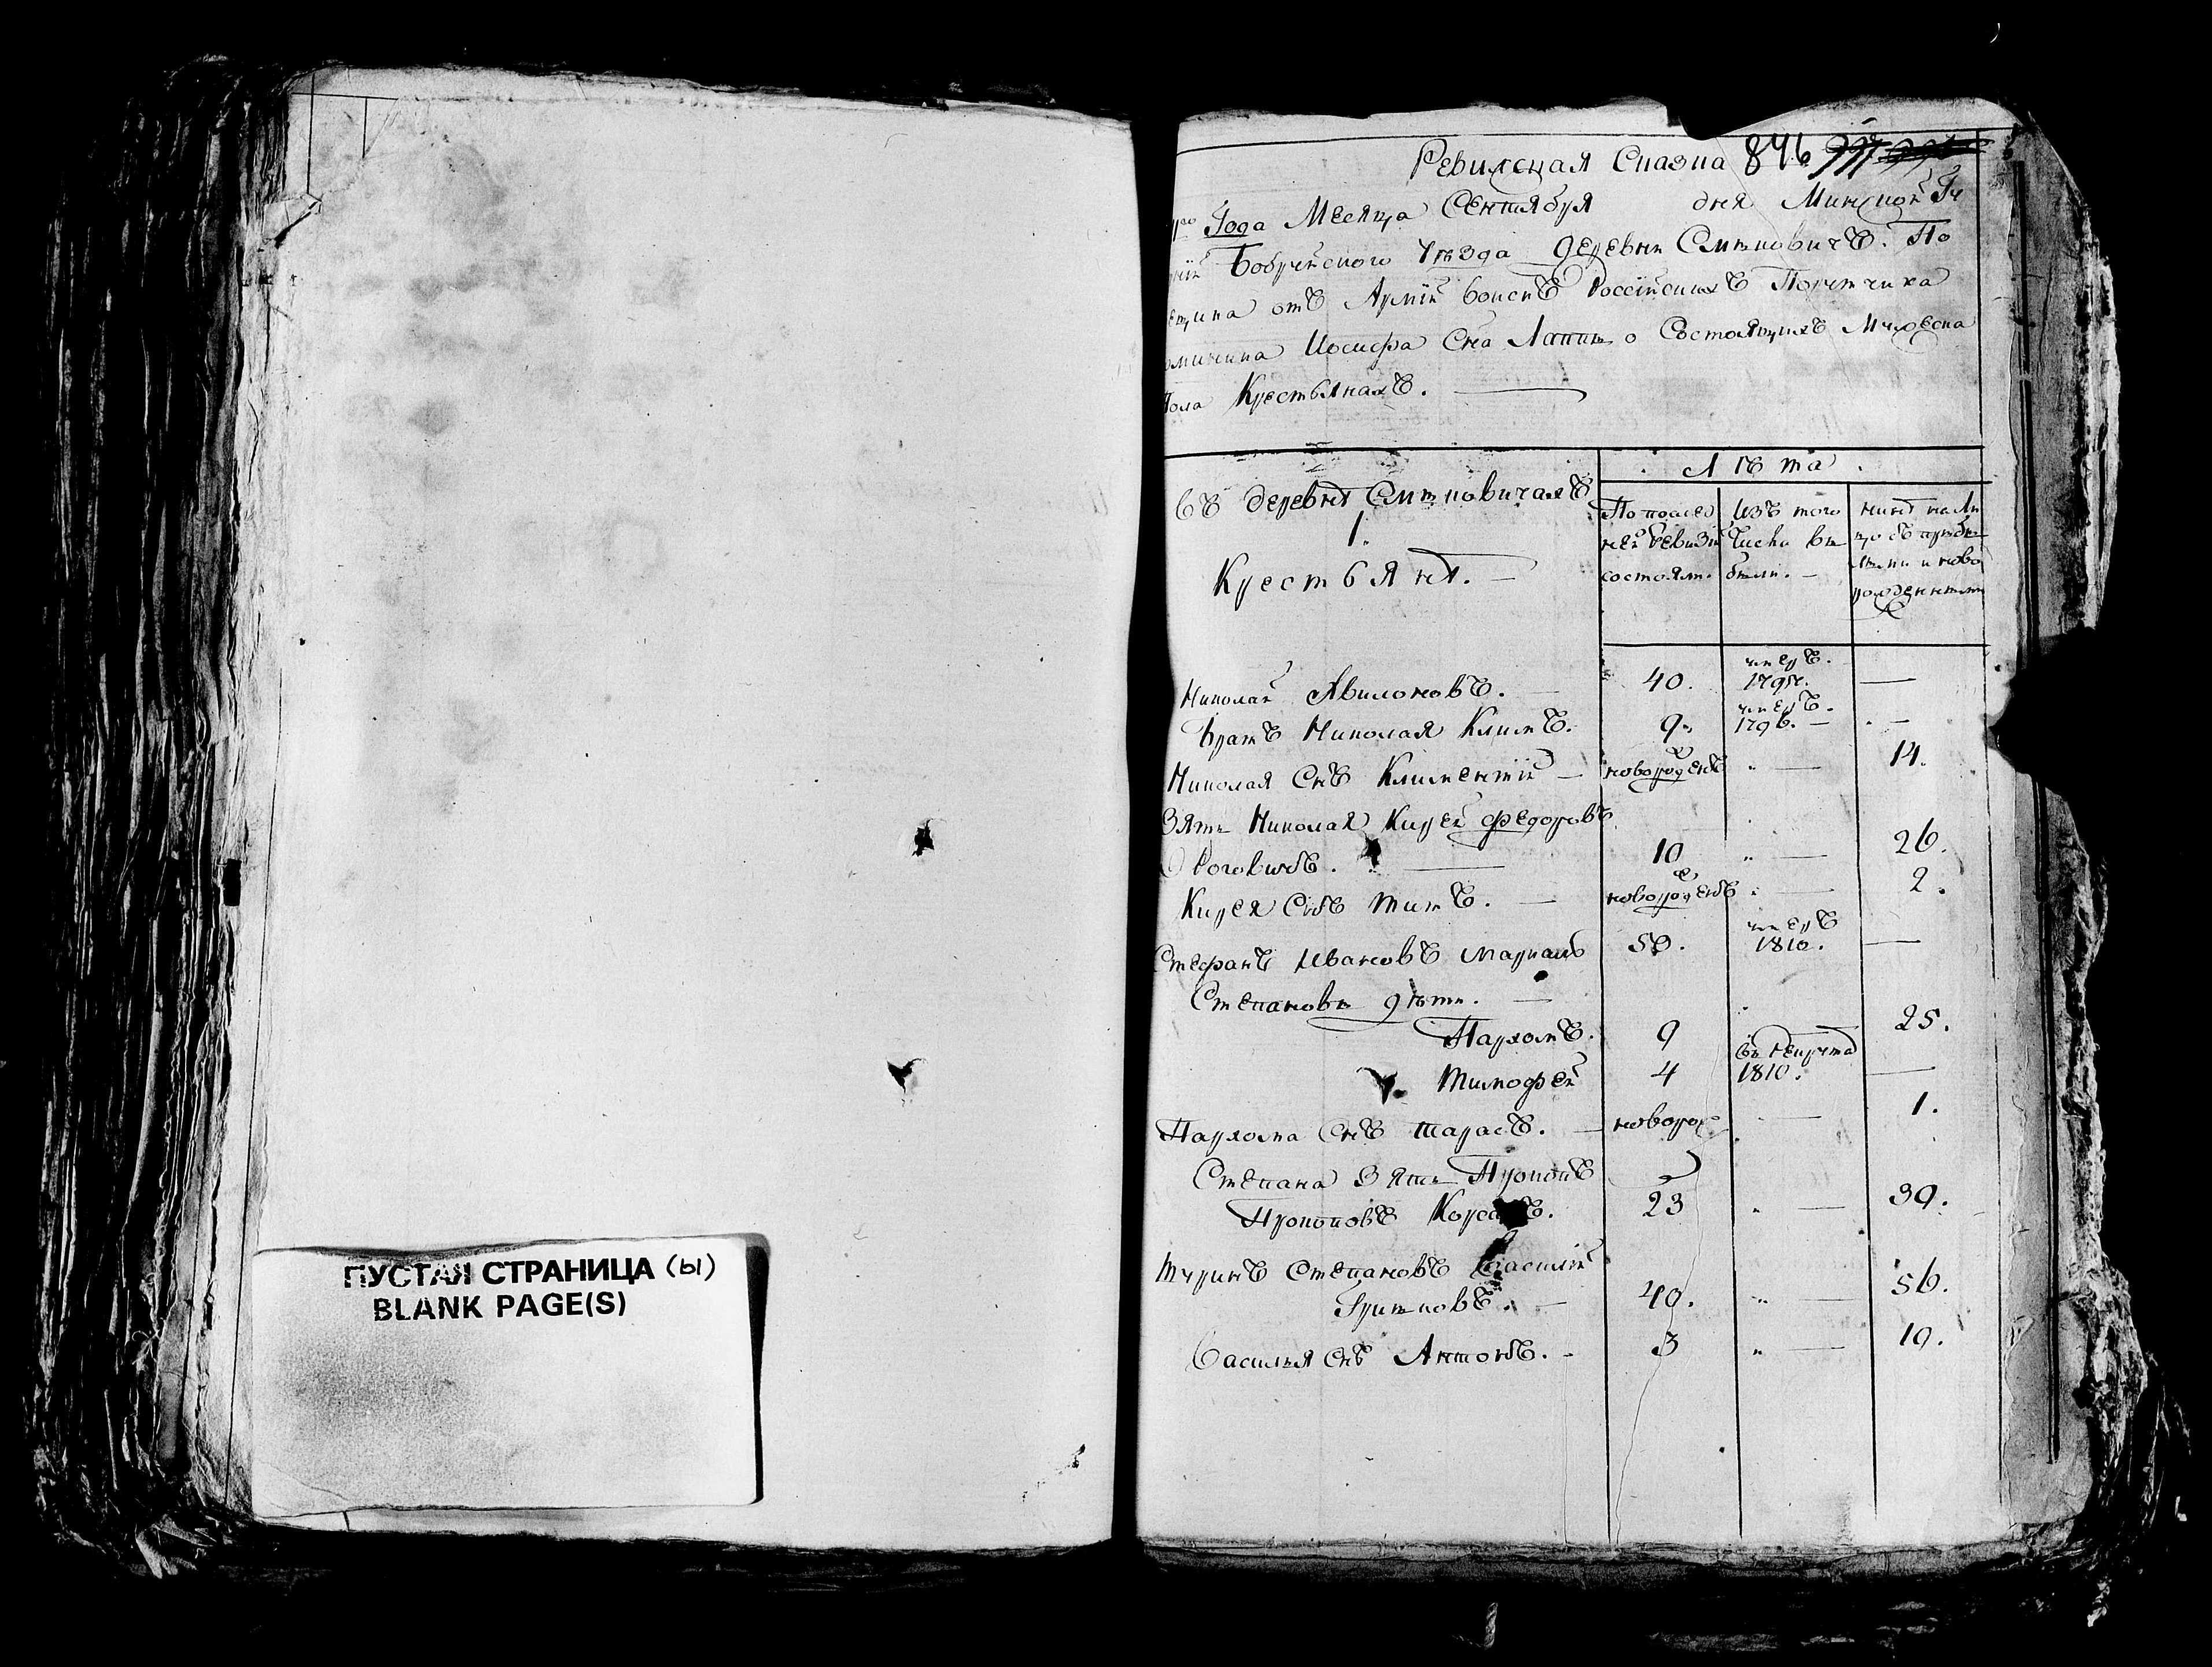 ПУСТАЯ СТРАНИЦА (ы)
BLANK PAGE(S)
Ревижская Сказка 846
Года Месяца Сентября дня Минской Гу
Бобруйского уѣзда деревни По
отъ Армій войскъ Россійскихъ Порутчика
Иосифа Сна о Состоящихъ Мужеска
Пола Крестьянахъ.
Лѣта
Въ деревнѣ
1.
Крестьянѣ.
По послѣд
ней ревизіи
состояли.
Изъ того
Числа вы
были.
нынѣ на ли
цо съ прибы
лыми и ново
рожденными
Николай 40. умеръ. 179
Братъ Николая Климъ. 9. умеръ. 1796.
Николая Снъ Климентій новорожденъ 14.
Зять Николая Кирей Федоровъ
10 26.
Кирея Снъ Титъ. новорожденъ 2.
Стефанъ Ивановъ 50. умеръ 1810.
Степановы дѣти.
Пархомъ. 9 25.
Тимофей 4 въ рекруты 1810.
Пархома Снъ Тарасъ. новорож 1.
Степана Зять Прокопъ
Прокоповъ 23 39.
Степановъ Василій
40. 56.
Василья Снъ Антонъ. 3 19.